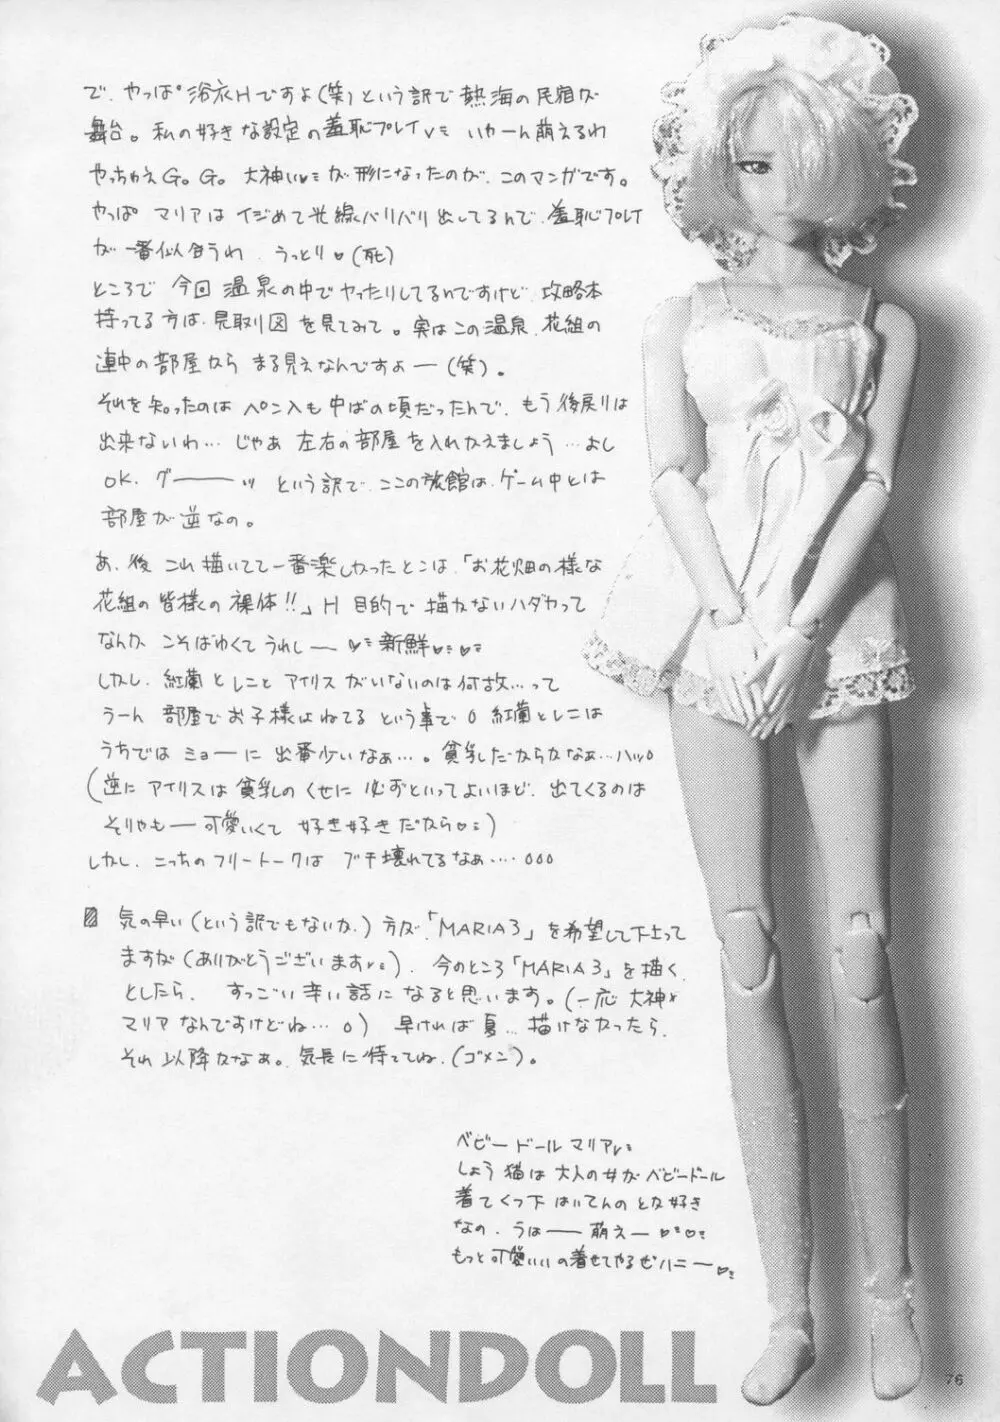 で、やっぱ浴衣Hですよ(笑)という訳で熱海の民宿が
舞台。私の好きな設定の羞恥プレイ♥ いやーん萌えるわ
やっちゃえG。G。大神い♥ が形になったのが、このマンガです。
やっぱ マリアはイジめて光線バリバリ出してるんで、羞恥プレイ
が一番似合うわ、うっとり♥(死)
ところで 今回 温泉の中でヤったりしてるんですけど、攻略本
持ってる方は、見取り図を見てみて。実はこの温泉、花組の
連中の部屋から まる見えなんですよー(笑)。
それを知ったのは ペン入も中ばの頃だったんで、もう後戻りは
出来ないわ…じゃあ 左右の部屋を入れかえましょう…よし
OK、グーーッ という訳で、ここの旅館は、ゲーム中とは
部屋が逆なの。
あ、後 これ描いてて一番楽しかったとこは、「お花畑の様な
花組の皆様の裸体!!」H 目的で描かないハダカって
なんか こそばゆくてうれしー♥ 新鮮♥♥
しかし、紅蘭とレニと アイリスがいないのは何故…って
うーん 部屋でお子様はねてる という事で。紅蘭とレニは
うちでは ミョーに 出番少いなぁ…。貧乳だからかなぁ…ハッ。
(逆に アイリスは貧乳のくせに 必ずといってよいほど、出てくるのは
そりゃもー可愛いくて 好き好きだから♥)
しかし、こっちのフリートークは ブチ壊れてるなぁ……。。。
気の早い(という訳でもないか、)方が、「MARIA3」を希望して下さって
ますが(ありがとうございます♥)、今のところ「MARIA3」を描く
としたら、すっごい辛い話になると思います。(一応 大神×
マリアなんですけどね…。) 早ければ夏…描けなかったら、
それ以降かなぁ。気長に待ててね、(ゴメン)。
ベビードール マリア♥
しょう猫は 大人の女が ベビードール
着てくつ下 はいてんの とか好き
なの、うはーー萌えー♥♥
もっと可愛いいの着せてやるぜハニー♥
ACTIONDOLL
76